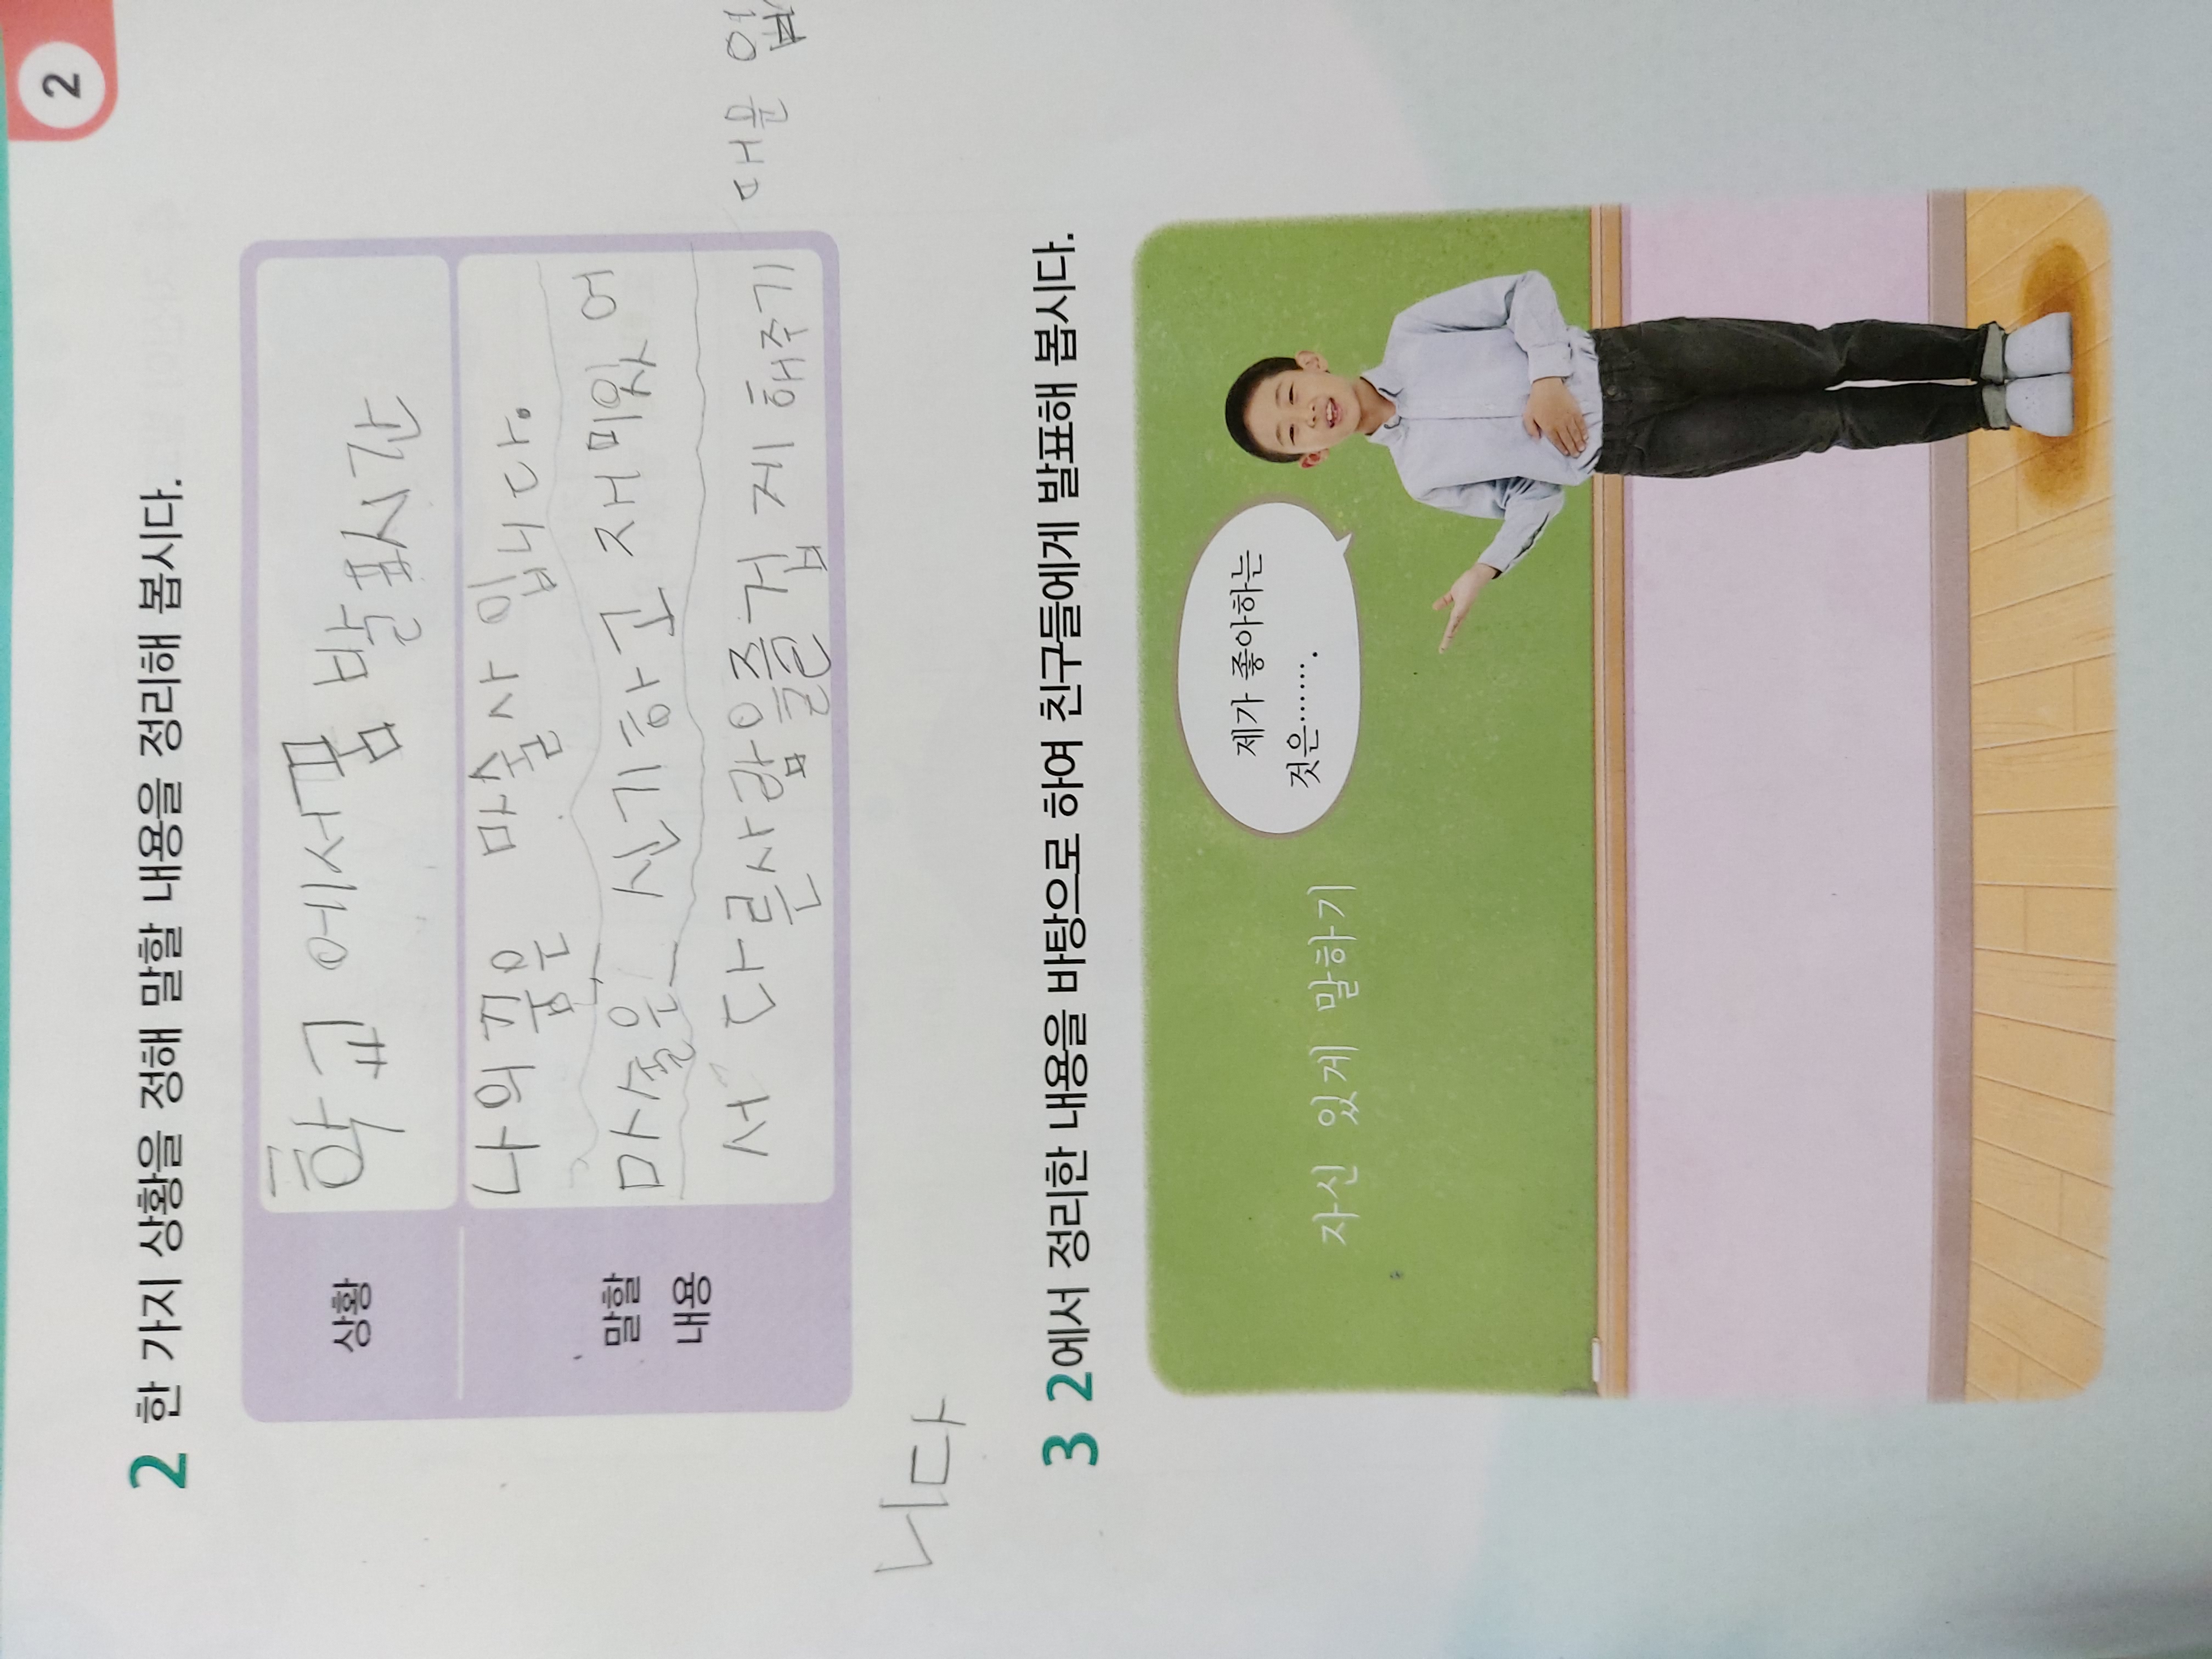 2
2 한 가지 상황을 정해 말할 내용을 정리해 봅시다.
상황
학교 에서꿈 발표시간
말할
내용
나의 꿈은 마술사 입니다.
마술은 신기하고 재미있 어
서 다른사람을즐겁 제 해주기 때문 입
니다
3 2에서 정리한 내용을 바탕으로 하여 친구들에게 발표해 봅시다.
제가 좋아하는
것은…….
자신 있게 말하기